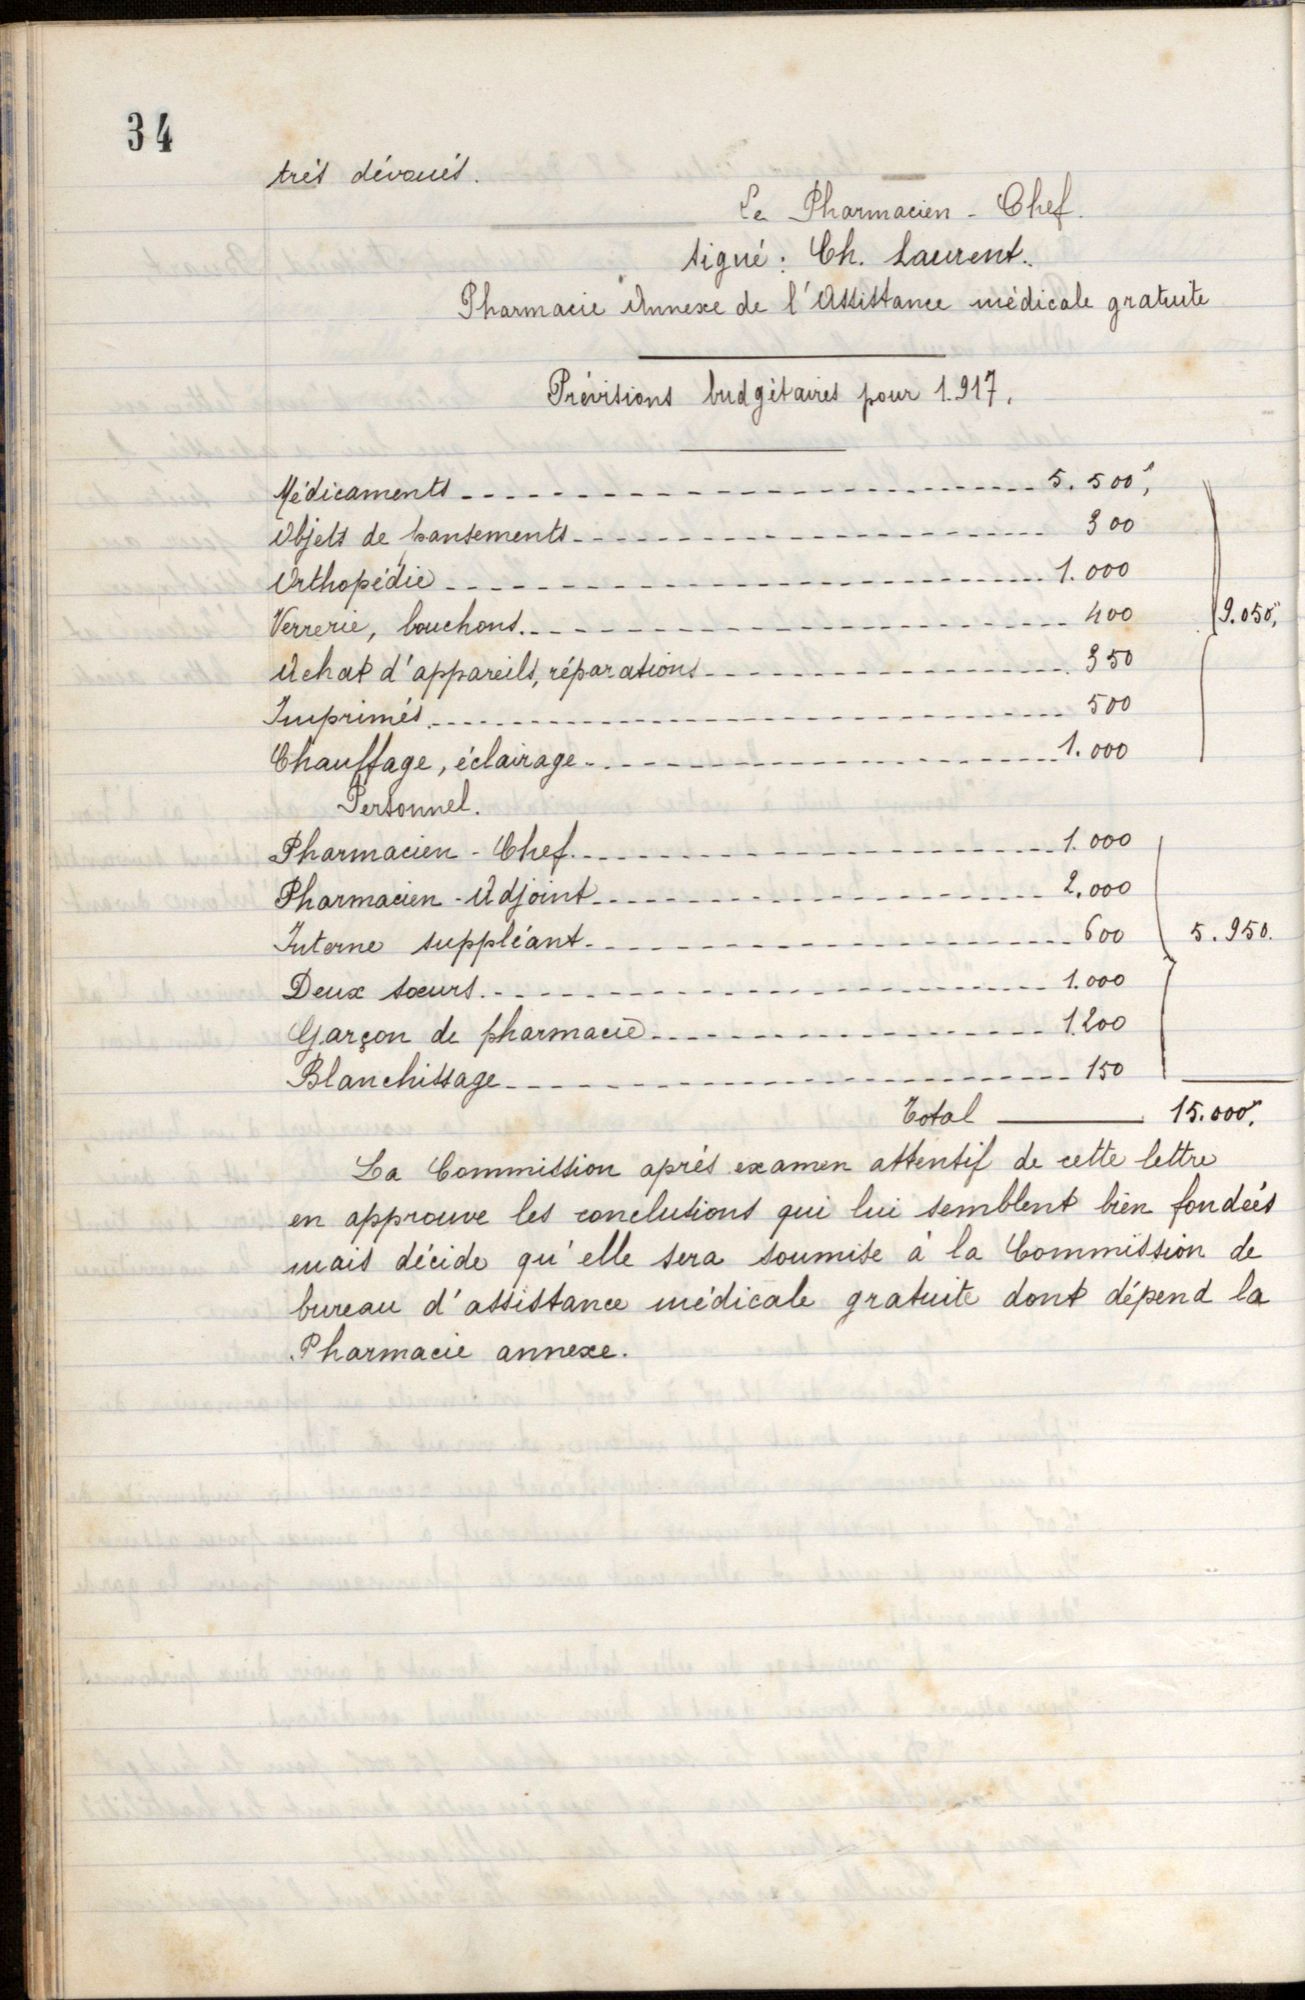 34
très dévoués.
Le Pharmacien - Chef.
signé : Ch. Laurent.
Pharmacie Annexe de l'Assistance médicale gratuite
Prévisions budgétaires pour 1.917.
Médicaments 5.500",
Objets de pansements 300
Orthopédie 1.000
Verrerie, bouchons. 400 9.050",
Achat d'appareils, réparations 350
Imprimés. 500
Chauffage, éclairage 1.000
Personnel.
Pharmacien - Chef. 1.000
Pharmacien - Adjoint 2.000
Interne suppléant 600 5.950.
Deux sœurs. 1.000
Garçon de pharmacie 1.200
Blanchissage 150
Total 15.000",
La Commission après examen attentif de cette lettre
en approuve les conclusions qui lui semblent bien fondées
mais décide qu'elle sera soumise à la Commission de
bureau d'assistance médicale gratuite dont dépend la
Pharmacie annexe.